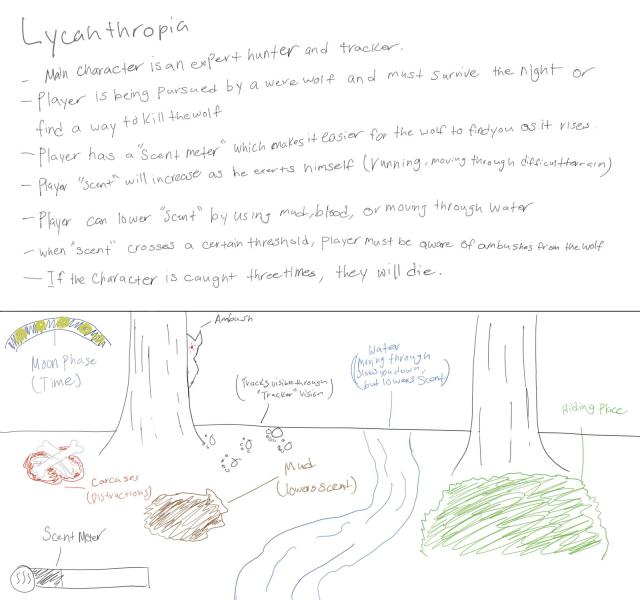 Lycanthropia
- Main character is an expert hunter and tracker.
- Player is being pursued by a werewolf and must survive the night or
find a way to kill the wolf
- Player has a "scent meter" which makes it easier for the wolf to find you as it rises.
- Player "scent" will increase as he exerts himself (running, moving through difficult terrain)
- Player can lower "scent" by using mud, blood, or moving through water
- when "scent" crosses a certain threshold, player must be aware of ambushes from the wolf
- If the character is caught three times, they will die.
Ambush
Moon Phase
(Time)
Water
(moving through
slows you down,
but lowers scent)
(Tracks visible through
"Tracker" vision)
Hiding Place
Carcases
(Distractions)
Mud
(lowers scent)
Scent Meter
SSS